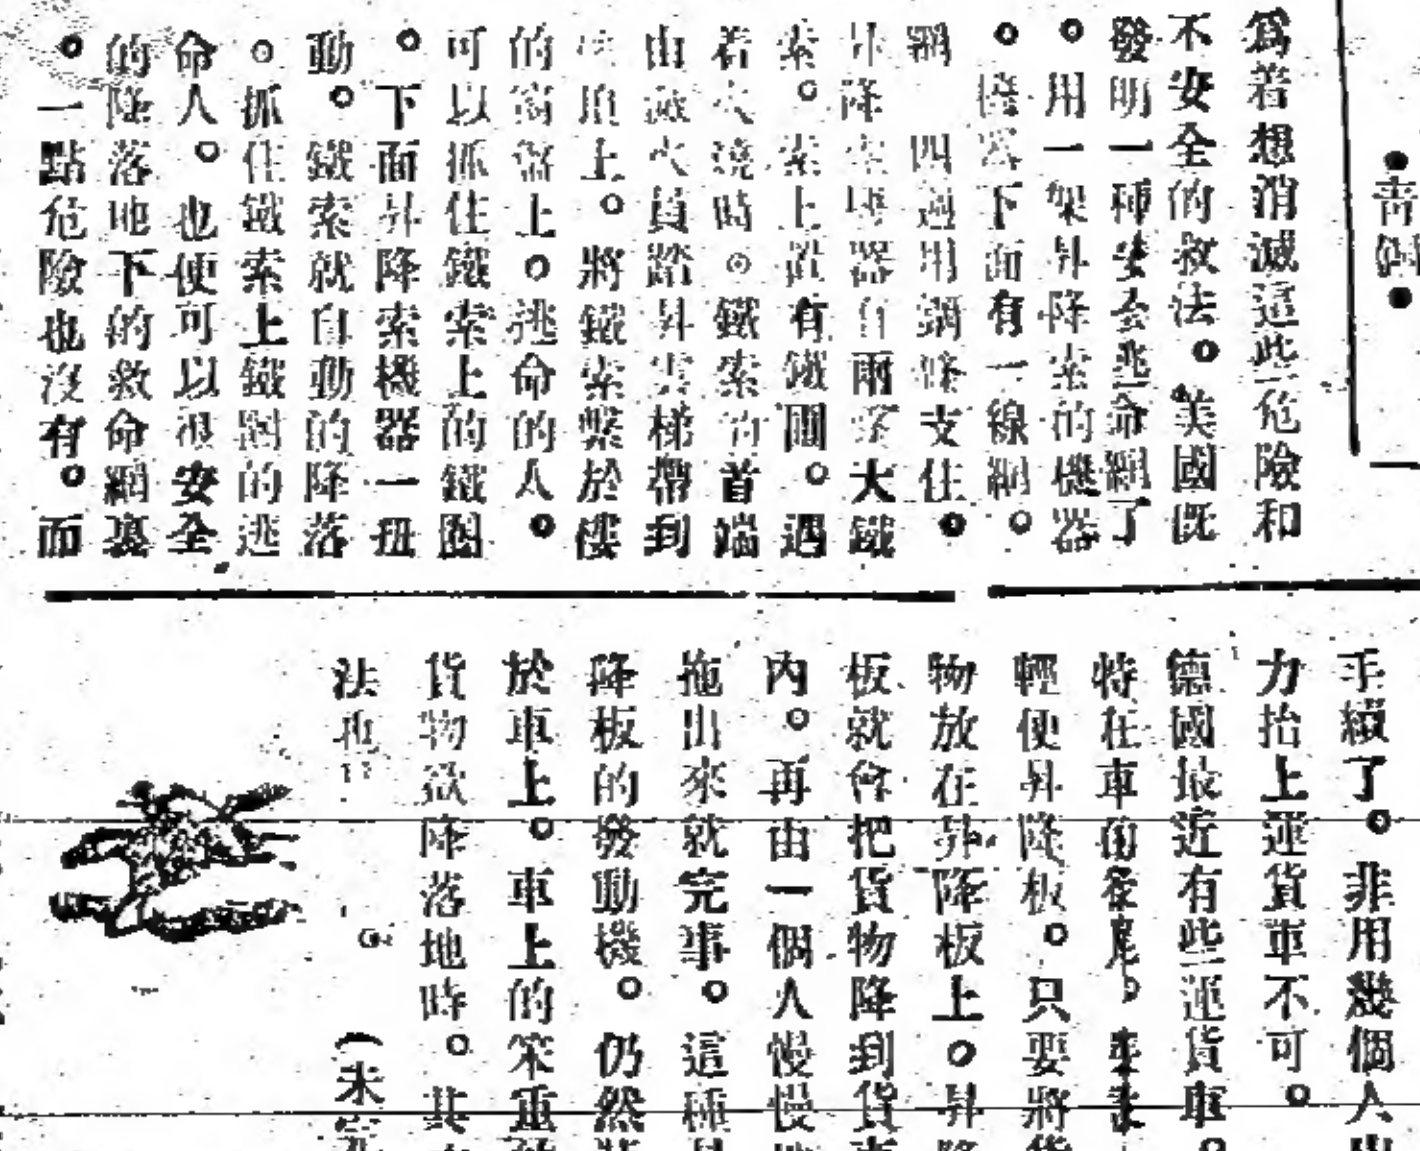 爲着想消滅這些危險和
不安全的救法。美國既
發明一種安全逃命網了
。用一架昇降索的機器
。降器下面有一線網。
網四週用鋼條支住。
昇降索機器有兩條大鐵
索。索上設有鐵圈。遇
着火燒時。鐵索的首端
由滅火員踏昇雲梯帶到
頂上。將鐵索繫於樓
的窗上。逃命的人。
可以抓住鐵索上的鐵圈
。下面昇降索機器一扭
動。鐵索就自動的降落
。抓住鐵索上鐵圈的逃
命人。也便可以很安全
的降落地下的救命網裏
。一點危險也沒有。而
手續了。非用幾個人
力抬上運貨車不可。
德國最近有些運貨車。
特在車的後尾。
輕便昇降板。只要將貨
物放在昇降板上。昇降
板就會把貨物降到貨車
內。再由一個人慢慢
拖出來就完事。這種
降板的發動機。仍然
於車上。車上的笨重
貨物欲降落地時。其
法也
。（未完